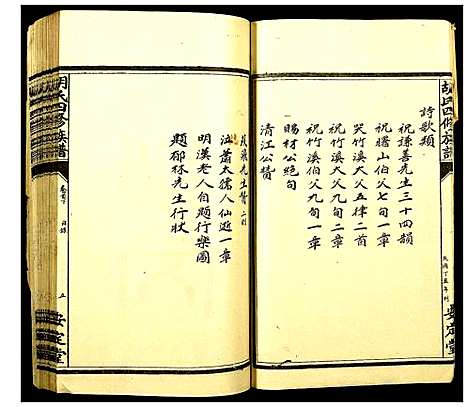 胡氏四修族譜
詩歌類
祝謙善先生三十四韻
祝曙山伯父七旬一章
哭竹溪大父五律二首
祝竹溪大父九旬二章
祝竹溪伯父九旬一章
賜材公絕句
清江公贊
民國丁丑年刊
安定堂
先生贊二則
蕭太孺人仙逝一章
明漢老人自題行樂圖
題郁林先生行狀
胡氏四修族譜
卷首下
目錄
五
安定堂